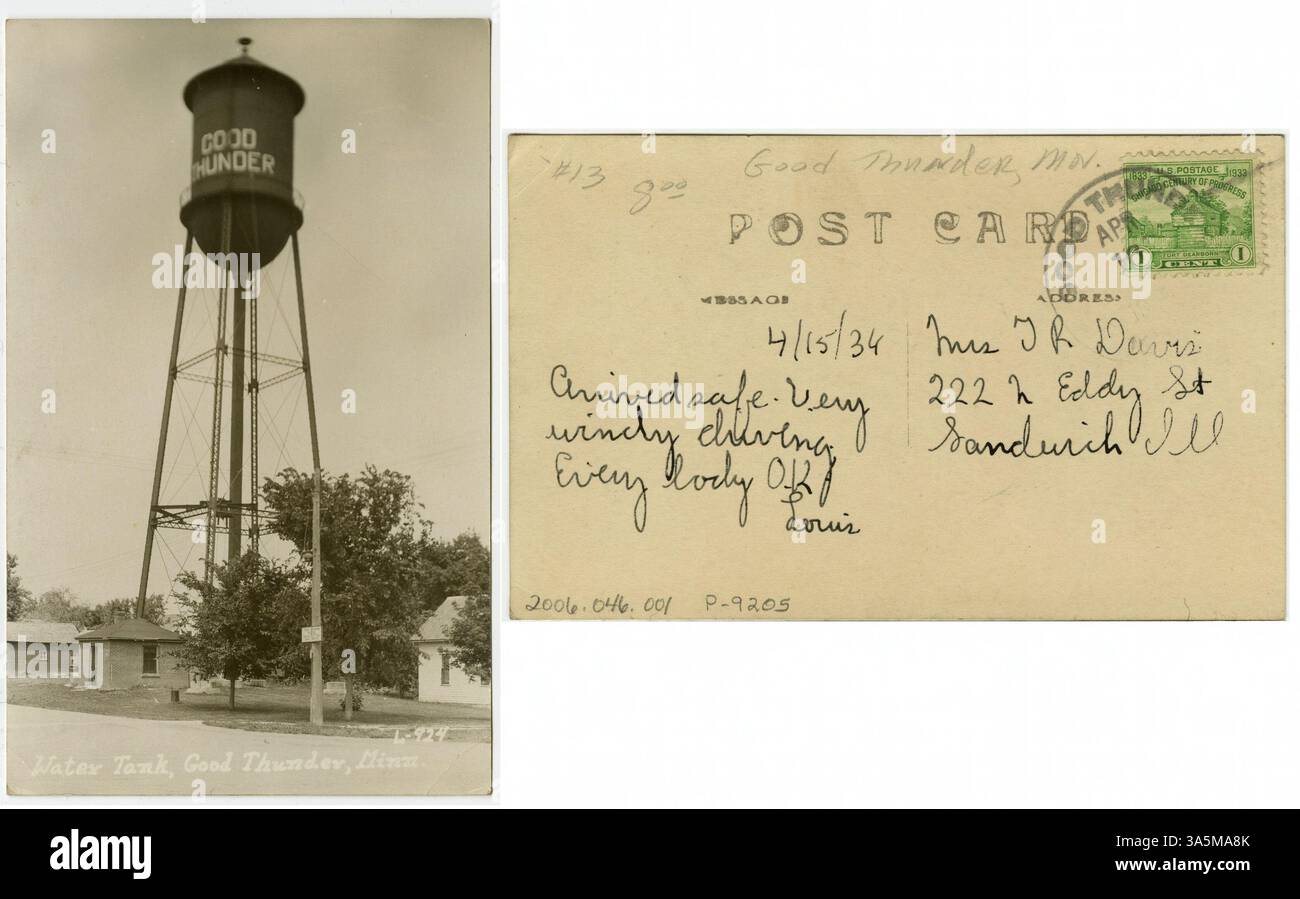 GOOD
THUNDER
L-924
Water Tank, Good Thunder, Minn.
#13
8.00
Good Thunder, Mn.
POST CARD
GOOD THUND
APR
1833 U.S. POSTAGE 1933
CHICAGO CENTURY OF PROGRESS
FORT DEARBORN
1 CENT 1
MESSAGE
ADDRESS
4/15/34
Arrived safe. Very
windy driving.
Every body O.K.
Louis
Mrs T R Davis
222 N Eddy St
Sandwich Ill
2006.046.001 P-9205
a
a
a
a
a
a
a
a
a
a
alamy
Image ID: 3A5MA8K
www.alamy.com